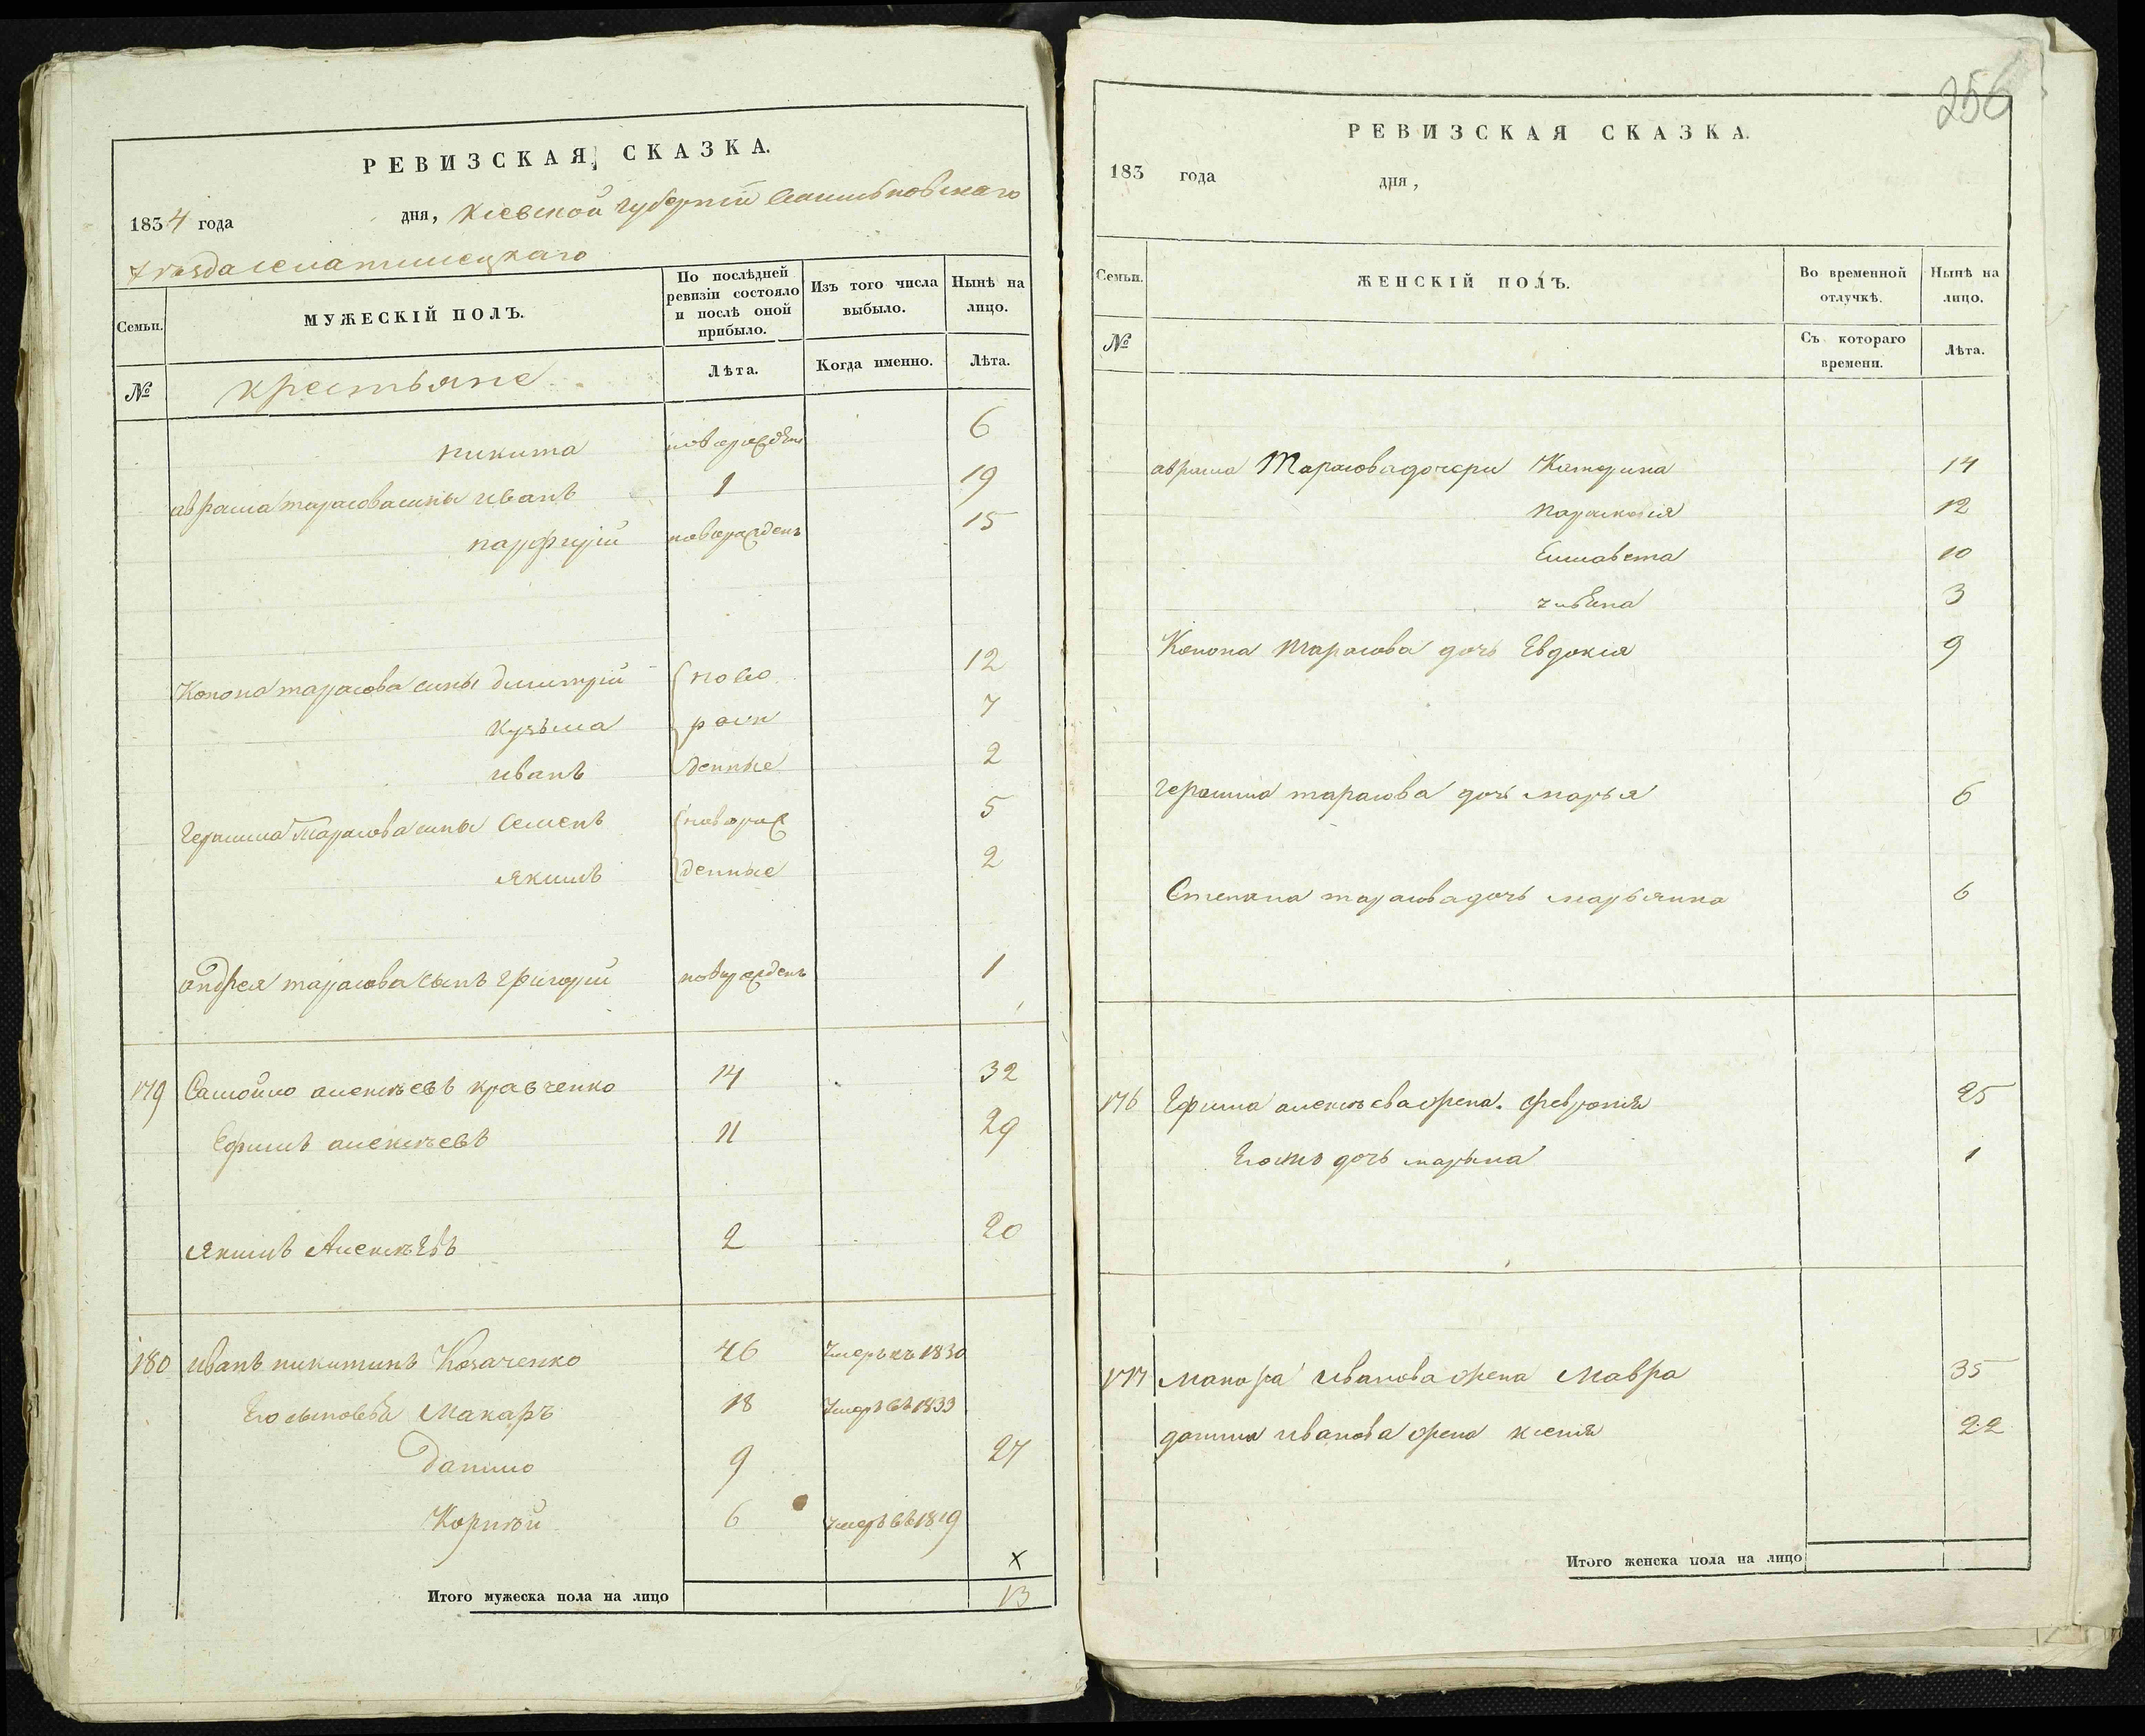 РЕВИЗСКАЯ, СКАЗКА.
1834 года дня, Кіевской губерніи
уезда села
Семьи.
МУЖЕСКІЙ ПОЛЪ.
По послѣдней ревизіи состояло и послѣ оной прибыло.
Изъ того числа выбыло.
Нынѣ на лицо.
№
крестьяне
Лѣта.
Когда именно.
Лѣта.
никита 6
тарасова сины иванъ 1 19
парфирій новорожденъ 15
Конона тарасова сины димитрій ново 12
кузьма рож 7
иванъ денные 2
Герасима Тарасова сины семенъ новорож 5
якимъ денные 2
андрея тарасова сынъ григорій новорожденъ 1
179 Самойло алексѣевъ кравченко 14 32
Ефимъ алексѣевъ 11 29
якимъ Алексѣевъ 2 20
180 иванъ никитинъ Козаченко 46 Умеръ въ 1830
Его сыновья Макаръ 18 Умеръ въ 1833
данило 9 27
Корнѣй 6 умеръ въ 1819
х
Итого мужеска пола на лицо 13
256
РЕВИЗСКАЯ СКАЗКА.
183 года дня,
Семьи.
ЖЕНСКІЙ ПОЛЪ.
Во временной отлучкѣ.
Нынѣ на лицо.
№
Съ котораго времени.
Лѣта.
Тарасова дочери Катерина 14
параскевия 12
Елисавета 10
3
Конона Тарасова дочь Евдокия 9
герасима тарасова дочь марья 6
Степана тарасова дочь марьянна 6
176 Ефима алексѣева жена. февронія 25
Его дочь марьна 1
177 Макара Иванова жена Мавра 35
данила иванова жена ксенія 22
Итого женска пола на лицо